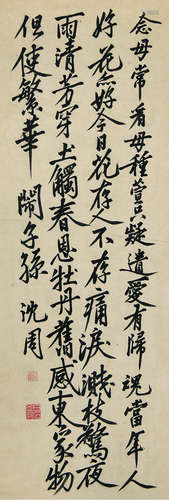 念母常看母種萱只疑遺愛有歸魂當年人
好花亦好今日花存人不存痛淚濺枝驚夜
雨清芳穿土觸春恩牡丹舊感東家物
但使繁華鬧子孫 沈周